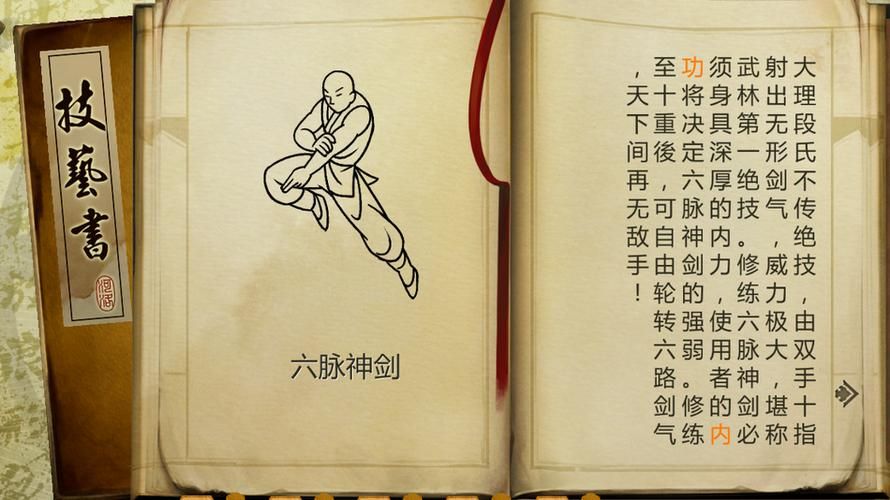 技藝書
河洛
六脉神剑
大理段氏不传绝技，由双手十指
射出无形剑气，威力极大，堪称
武林第一绝技。修练六脉神剑必
须身具深厚的内力，使用者的内
功将决定六脉神剑的强弱。修练
至十重後，可自由轮转六路剑气
，天下间再无敌手！